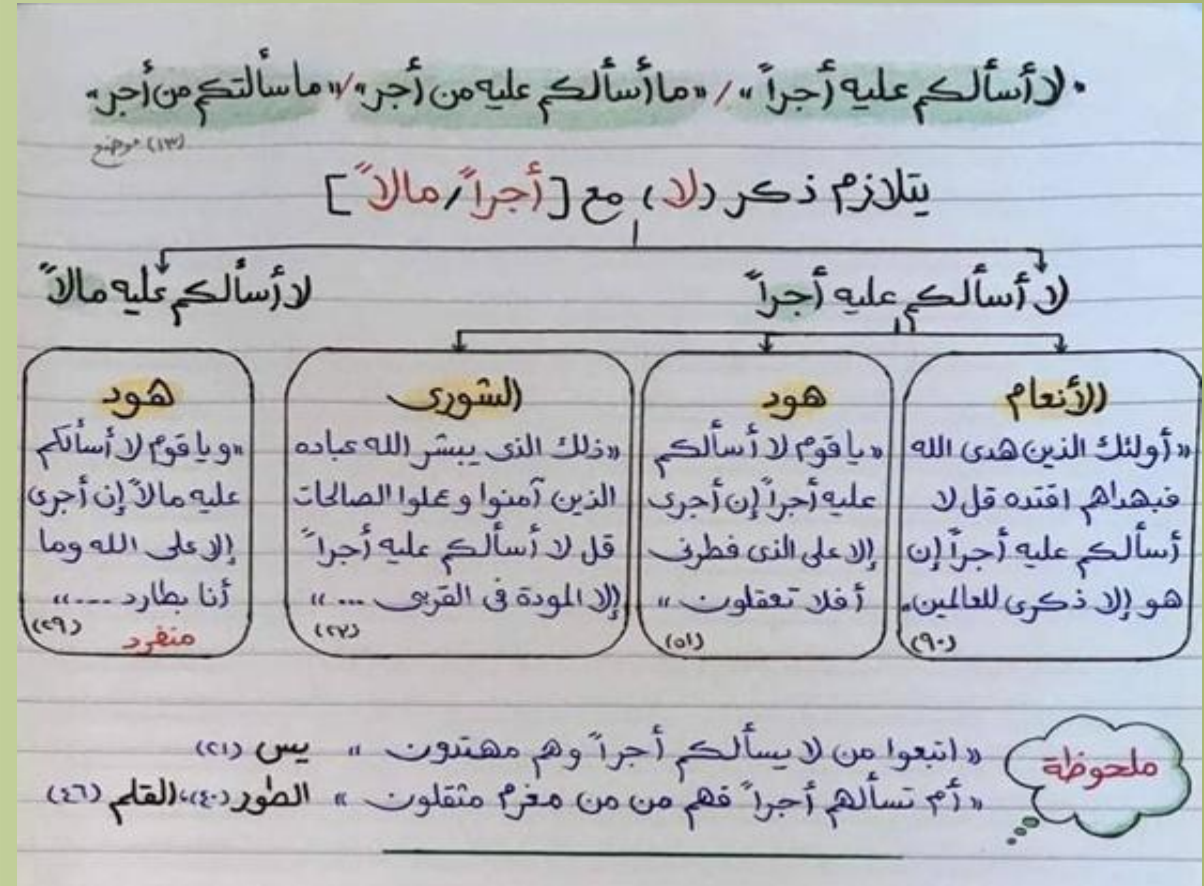 • لا أسألكم عليه أجراً » / « ما أسألكم عليه من أجر » / « ما سألتكم من أجر »
(١٣) موضع
يتلازم ذكر (لا) مع [أجراً / مالاً]
لا أسألكم عليه أجراً
لا أسألكم عليه مالاً
الأنعام
« أولئك الذين هدى الله
فبهداهم اقتده قل لا
أسألكم عليه أجراً إن
هو إلا ذكرى للعالمين »
(٩٠)
هود
« يا قوم لا أسألكم
عليه أجراً إن أجرى
إلا على الذى فطرنى
أفلا تعقلون »
(٥١)
الشورى
« ذلك الذى يبشر الله عباده
الذين آمنوا وعملوا الصالحات
قل لا أسألكم عليه أجراً
إلا المودة فى القربى ... »
(٢٣)
هود
« ويا قوم لا أسألكم
عليه مالاً إن أجرى
إلا على الله وما
أنا بطارد .... »
(٢٩)
منفرد
ملحوظة
« اتبعوا من لا يسألكم أجراً وهم مهتدون » يس (٢١)
« أم تسألهم أجراً فهم من من مغرم مثقلون » الطور (٤٠)، القلم (٤٦)